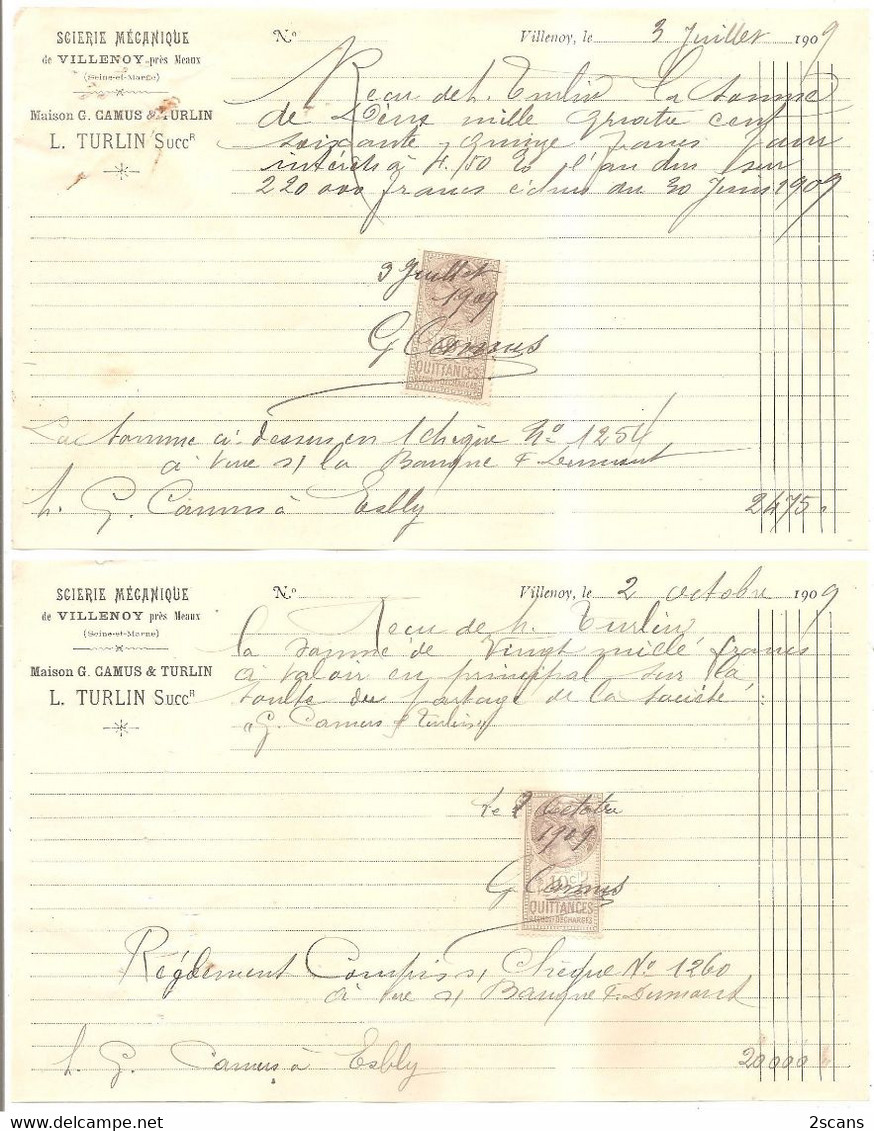 SCIERIE MÉCANIQUE
de VILLENOY près Meaux
(Seine-et-Marne)
Maison G. CAMUS & TURLIN
L. TURLIN SuccR
No
Villenoy, le 3 Juillet 1909
Recu de M. Turlin la somme
de Deux mille quatre cent
soixante quinze francs pour
intérêts à 4./50 % l'an dus sur
220 000 francs échus du 30 Juin 1909
3 Juillet
1909
G Camus
QUITTANCES
La somme ci-dessus en 1 chèque No 1254
à vue s/ la Banque F. Dumont
M. G. Camus à Esbly
2475
SCIERIE MÉCANIQUE
de VILLENOY près Meaux
(Seine-et-Marne)
Maison G. CAMUS & TURLIN
L. TURLIN SuccR
No
Villenoy, le 2 octobre 1909
Recu de M. Turlin
la somme de Vingt mille francs
à valoir en principal sur la
soulte du partage de la société
"G. Camus & Turlin"
Le 2 Octobre
1909
G Camus
10c
QUITTANCES
REÇUS & DÉCHARGES
Réglement Compris s/ Chèque No 1260
à vue s/ Banque F. Dumont
M. G. Camus à Esbly
20000
2scans